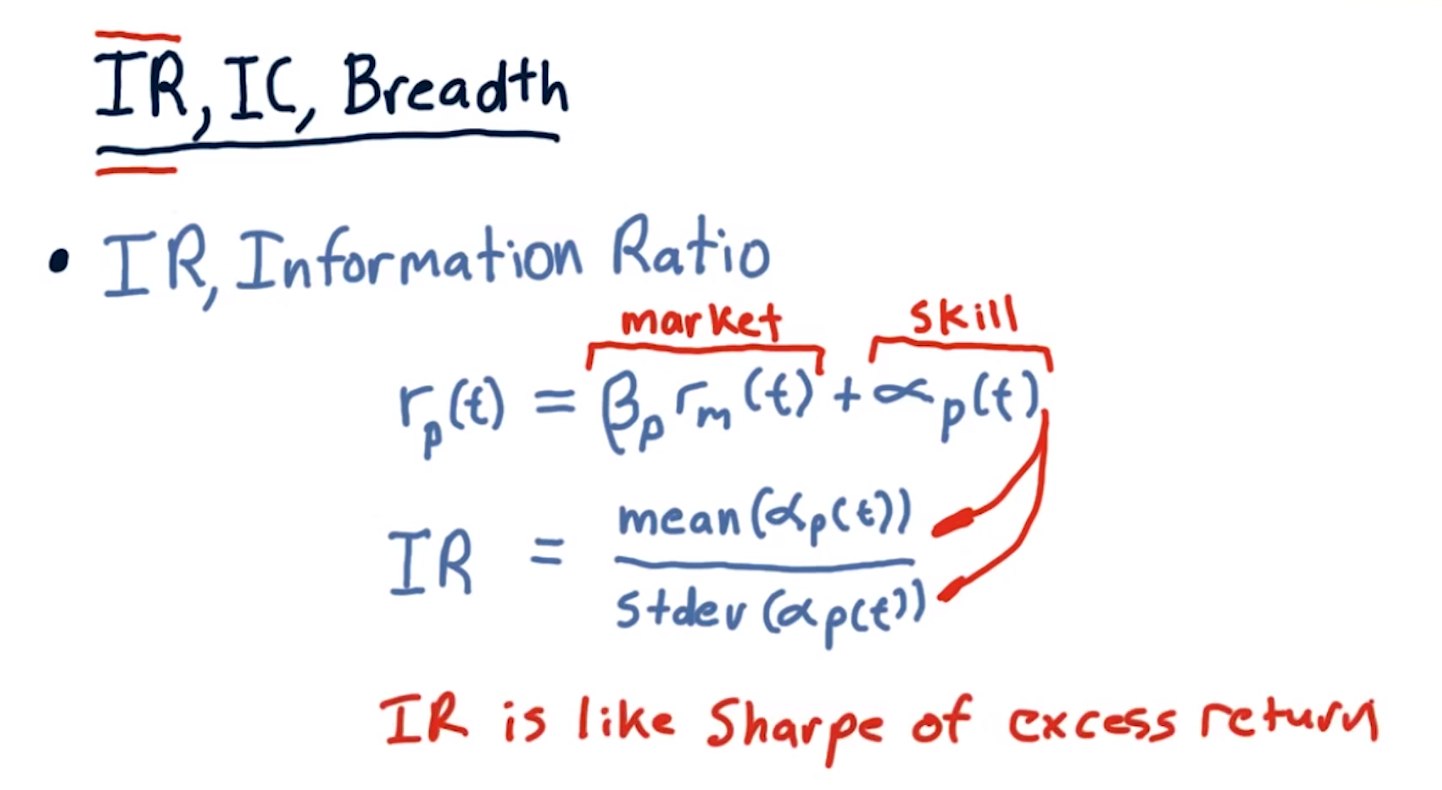 IR, IC, Breadth
• IR, Information Ratio
market skill
rₚ(t) = βₚ rₘ(t) + αₚ(t)
IR = mean(αₚ(t)) / stdev(αₚ(t))
IR is like Sharpe of excess return